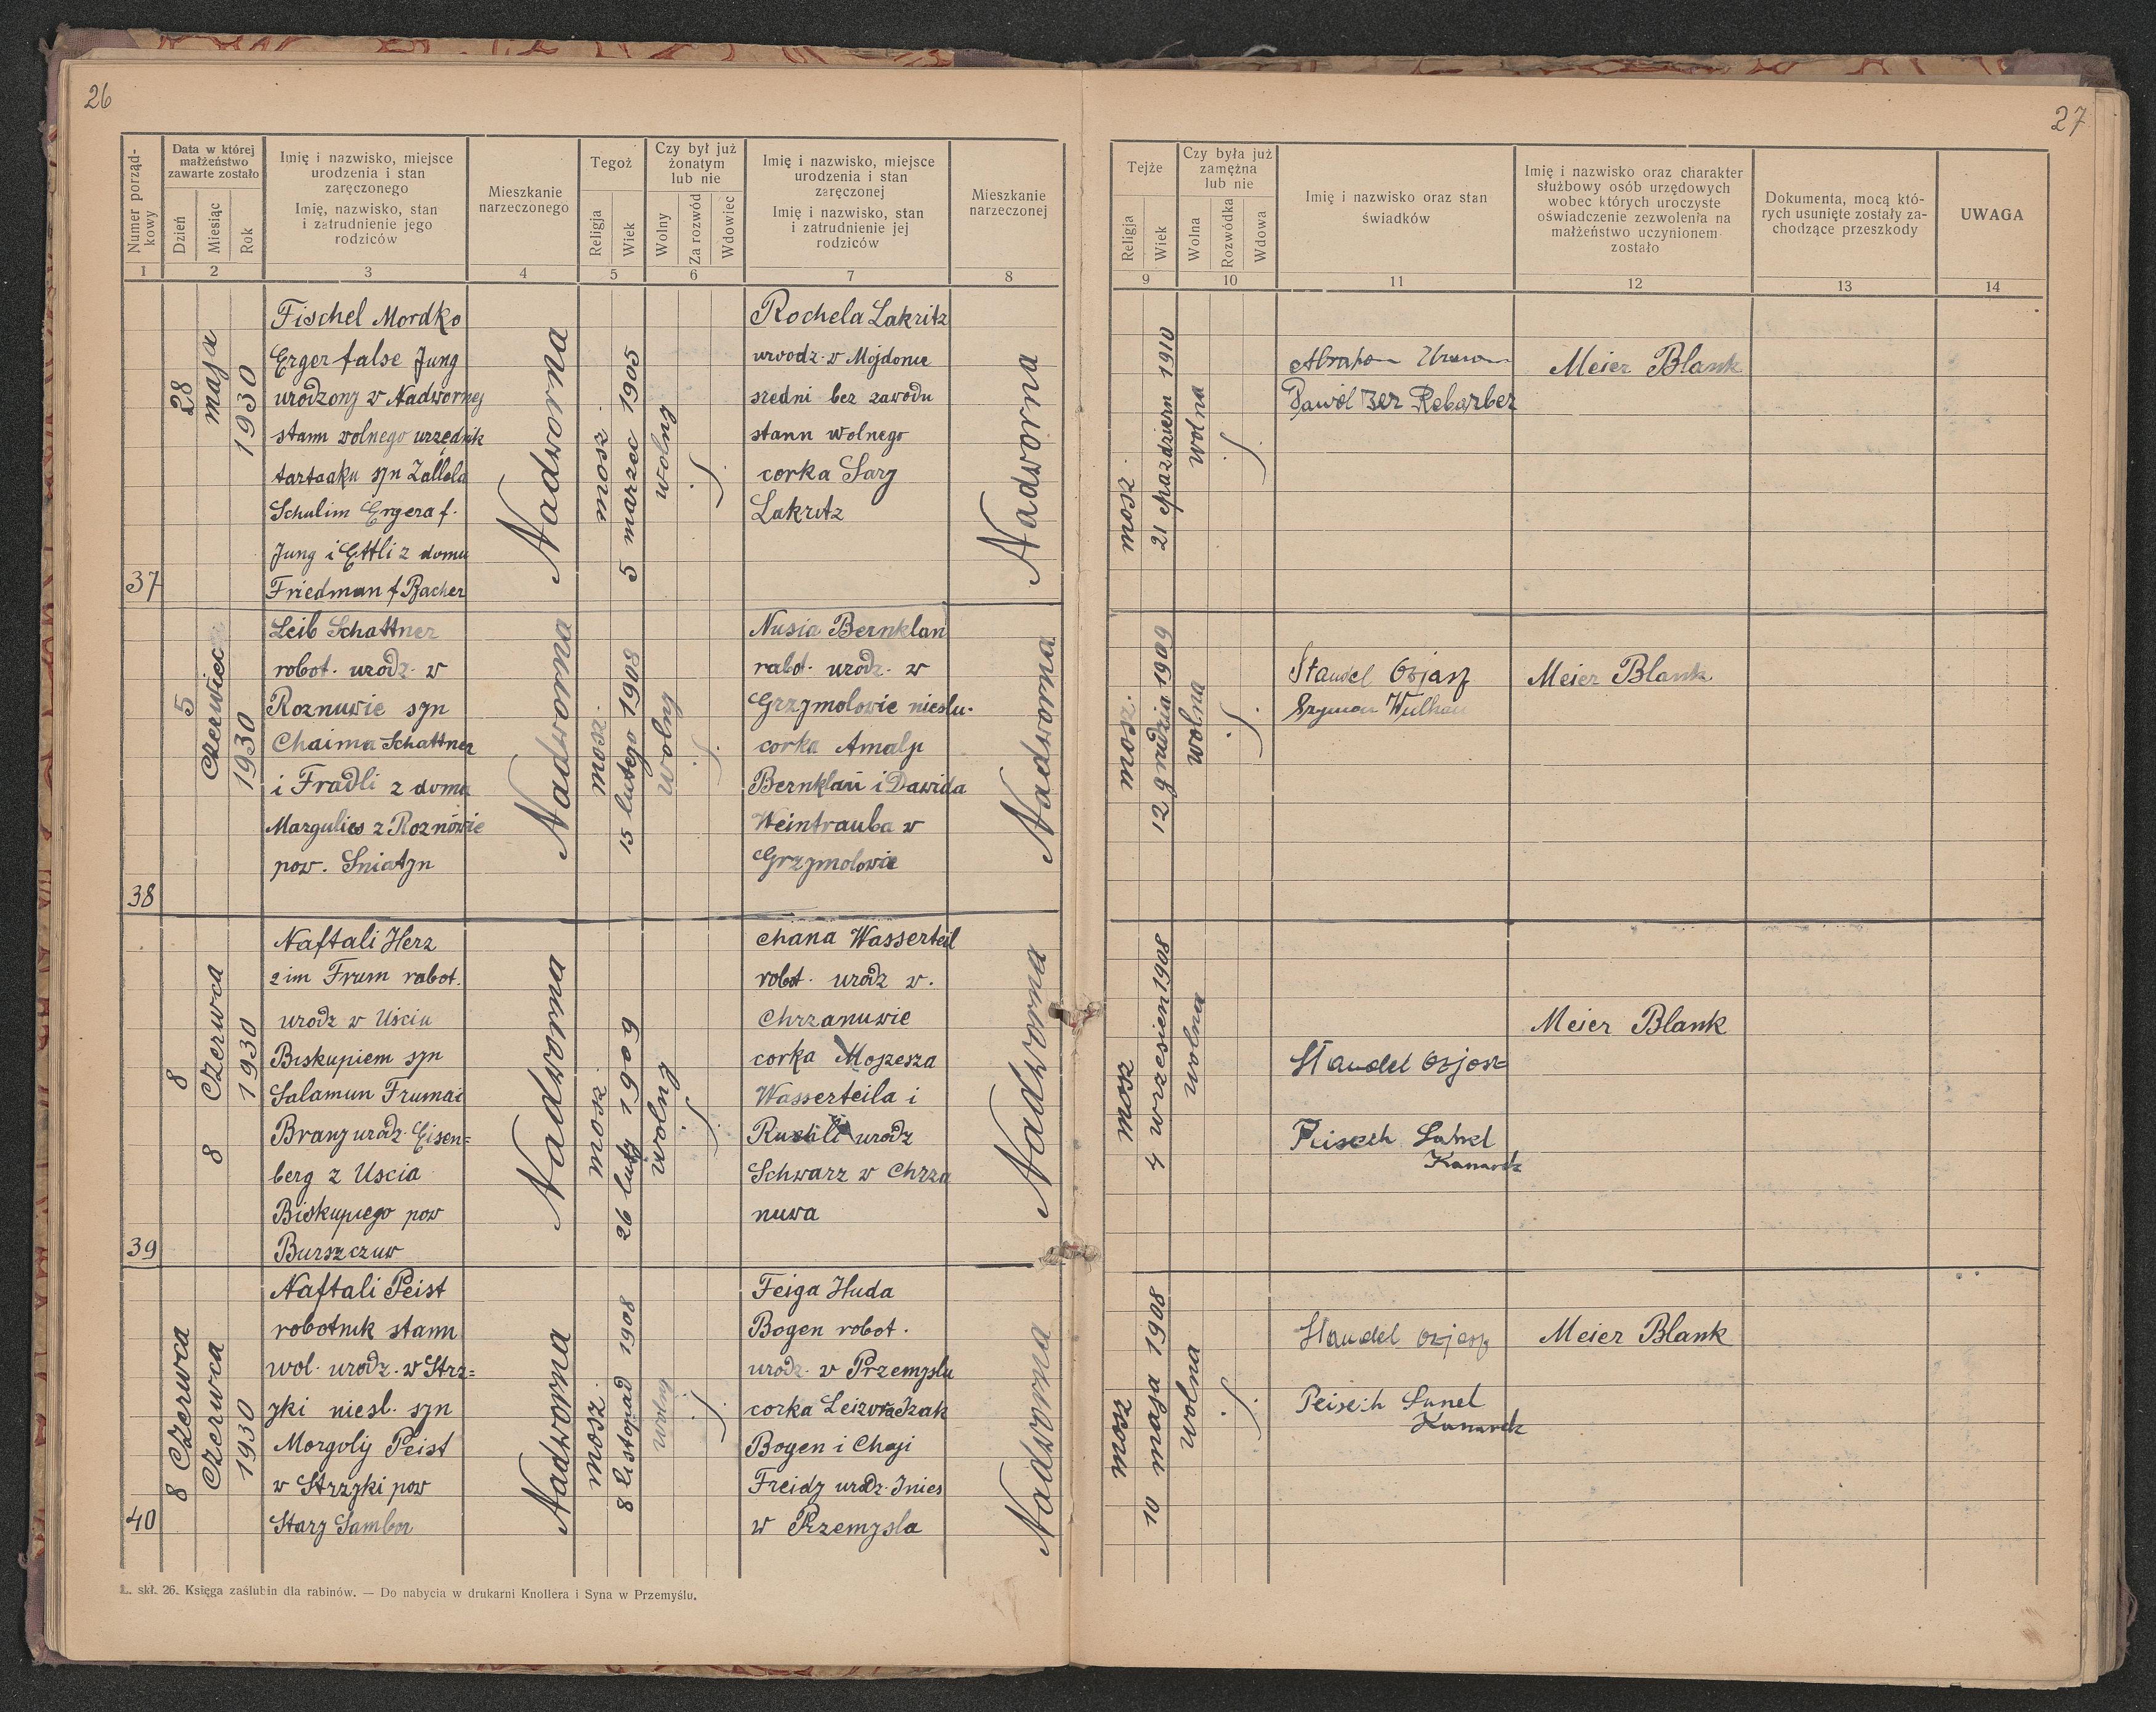 26
27
Numer porząd-
kowy
Data w której
małżeństwo
zawarte zostało
Dzień
Miesiąc
Rok
Imię i nazwisko, miejsce
urodzenia i stan
zaręczonego
Imię, nazwisko, stan
i zatrudnienie jego
rodziców
Mieszkanie
narzeczonego
Tegoż
Religja
Wiek
Czy był już
żonatym
lub nie
Wolny
Za rozwód
Wdowiec
Imię i nazwisko, miejsce
urodzenia i stan
zaręczonej
Imię i nazwisko, stan
i zatrudnienie jej
rodziców
Mieszkanie
narzeczonej
Tejże
Religja
Wiek
Czy była już
zamężna
lub nie
Wolna
Rozwódka
Wdowa
Imię i nazwisko oraz stan
świadków
Imię i nazwisko oraz charakter
służbowy osób urzędowych
wobec których uroczyste
oświadczenie zezwolenia na
małżeństwo uczynionem
zostało
Dokumenta, mocą któ-
rych usunięte zostały za-
chodzące przeszkody
UWAGA
1 2 3 4 5 6 7 8 9 10 11 12 13 14
37
28
maja
1930
Fischel Mordko
Erger false Jung
urodzony w Nadwornej
stann wolnego urzędnik
tartaaku syn Zallela
Schulim Ergera f.
Jung i Ettli z domu
Friedman f Bacher
Nadworna
mosz.
5 marzec 1905
wolny
Rochela Lakritz
urodz. w Mojdonie
sredni bez zawodu
stann wolnego
corka Sary
Lakritz
Nadworna
mosz.
21 pazdziern 1910
wolna
Meier Blank
Rebarber
38
5
Czerwiec
1930
Leib Schattner
robot. urodz. w
Roznuwie syn
Chaima Schattner
i Fradli z domu
Margulies z Roznowie
pow. Sniatyn
Nadworna
mosz.
15 lutego 1908
wolny
Nusia Bernklau
rabot. urodz. w
Grzymolowie nieslu.
corka Amaly
Bernklau i Dawida
Weintrauba w
Grzymolowie
Nadworna
mosz.
12 grudzia 1909
wolna
Staudel Osjasz
Szymon
Meier Blank
39
8
8
Czerwca
1930
Naftali Herz
2 im Frum rabot.
urodz w Usciu
Biskupiem syn
Salamun Frumai
Brany urodz. Eisen=
berg z Uscia
Biskupiego pow
Burszczuw
Nadworna
mosz.
26 luty 1909
wolny
Chana Wasserteil
robot. urodz w.
Chrzanuwie
corka Mojzesza
Wasserteila i
urodz
Schwarz w Chrza
nuwa
Nadworna
mosz
4 wrzesien 1908
wolna
Staudel Osjasz
Peisech
Kanarek
Meier Blank
40
8 Czerwca
Czerwca
1930
Naftali Peist
robotnik stann
wol. urodz. w Strz=
yki niesl. syn
Morgoly Peist
w Strzyki pow
Stary Sambor
Nadworna
mosz.
8 listopad 1908
wolny
Feiga Huda
Bogen robot.
urodz. w Przemyslu
corka Leizora Izak
Bogen i Chaji
Freidy urdz. Inies
w Przemysla
Nadworna
mosz
10 maja 1908
wolna
Staudel Osjasz
Peisech
Kanarek
Meier Blank
L. skł. 26. Księga zaślubin dla rabinów. — Do nabycia w drukarni Knollera i Syna w Przemyślu.